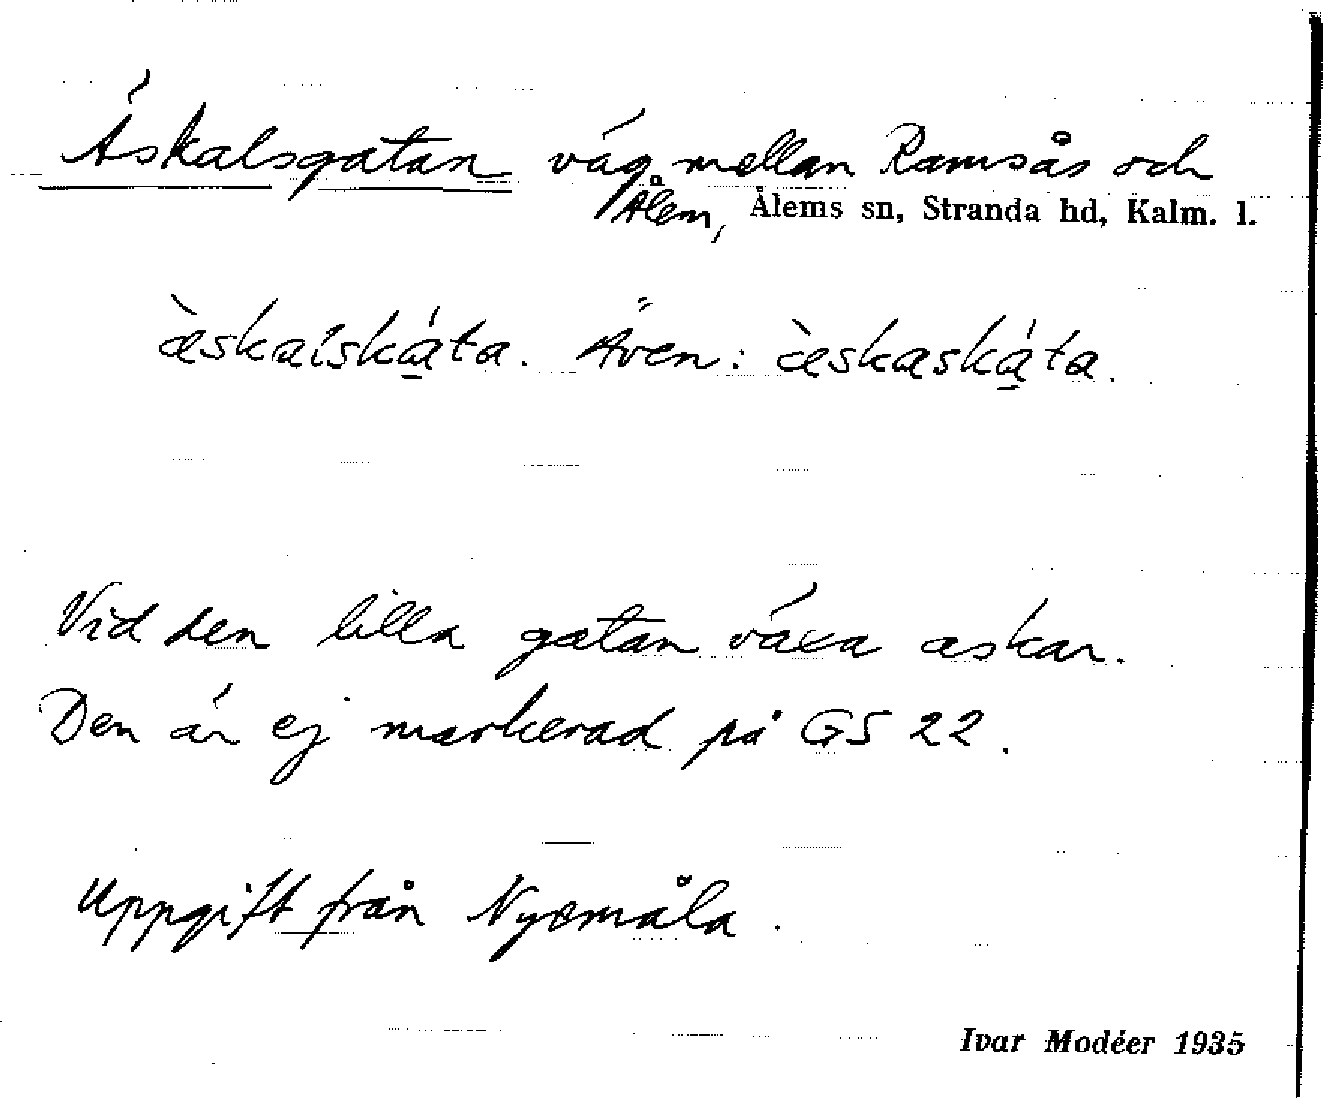 Äskalsgatan väg mellan Ramsås och
Ålem, Ålems sn, Stranda hd, Kalm. l.
æ̀skalskáta. Även: æ̀skaskáta.
Vid den lilla gatan växa askar.
Den är ej markerad på GS 22.
Uppgift från Nyemåla.
Ivar Modéer 1935